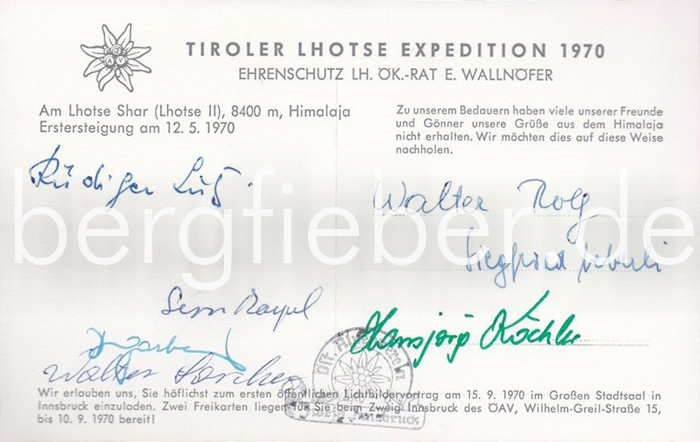 TIROLER LHOTSE EXPEDITION 1970
EHRENSCHUTZ LH. ÖK.-RAT E. WALLNÖFER
Am Lhotse Shar (Lhotse II), 8400 m, Himalaja
Erstersteigung am 12. 5. 1970
Zu unserem Bedauern haben viele unserer Freunde
und Gönner unsere Grüße aus dem Himalaja
nicht erhalten. Wir möchten dies auf diese Weise
nachholen.
Rüdiger
Walter
bergfieber.de
Siegfried
Sepp Mayerl
Hansjörg Köchler
Walter Larcher
Wir erlauben uns, Sie höflichst zum ersten öffentlichen Lichtbildervortrag am 15. 9. 1970 im Großen Stadtsaal in
Innsbruck einzuladen. Zwei Freikarten liegen für Sie beim Zweig Innsbruck des ÖAV, Wilhelm-Greil-Straße 15,
bis 10. 9. 1970 bereit!